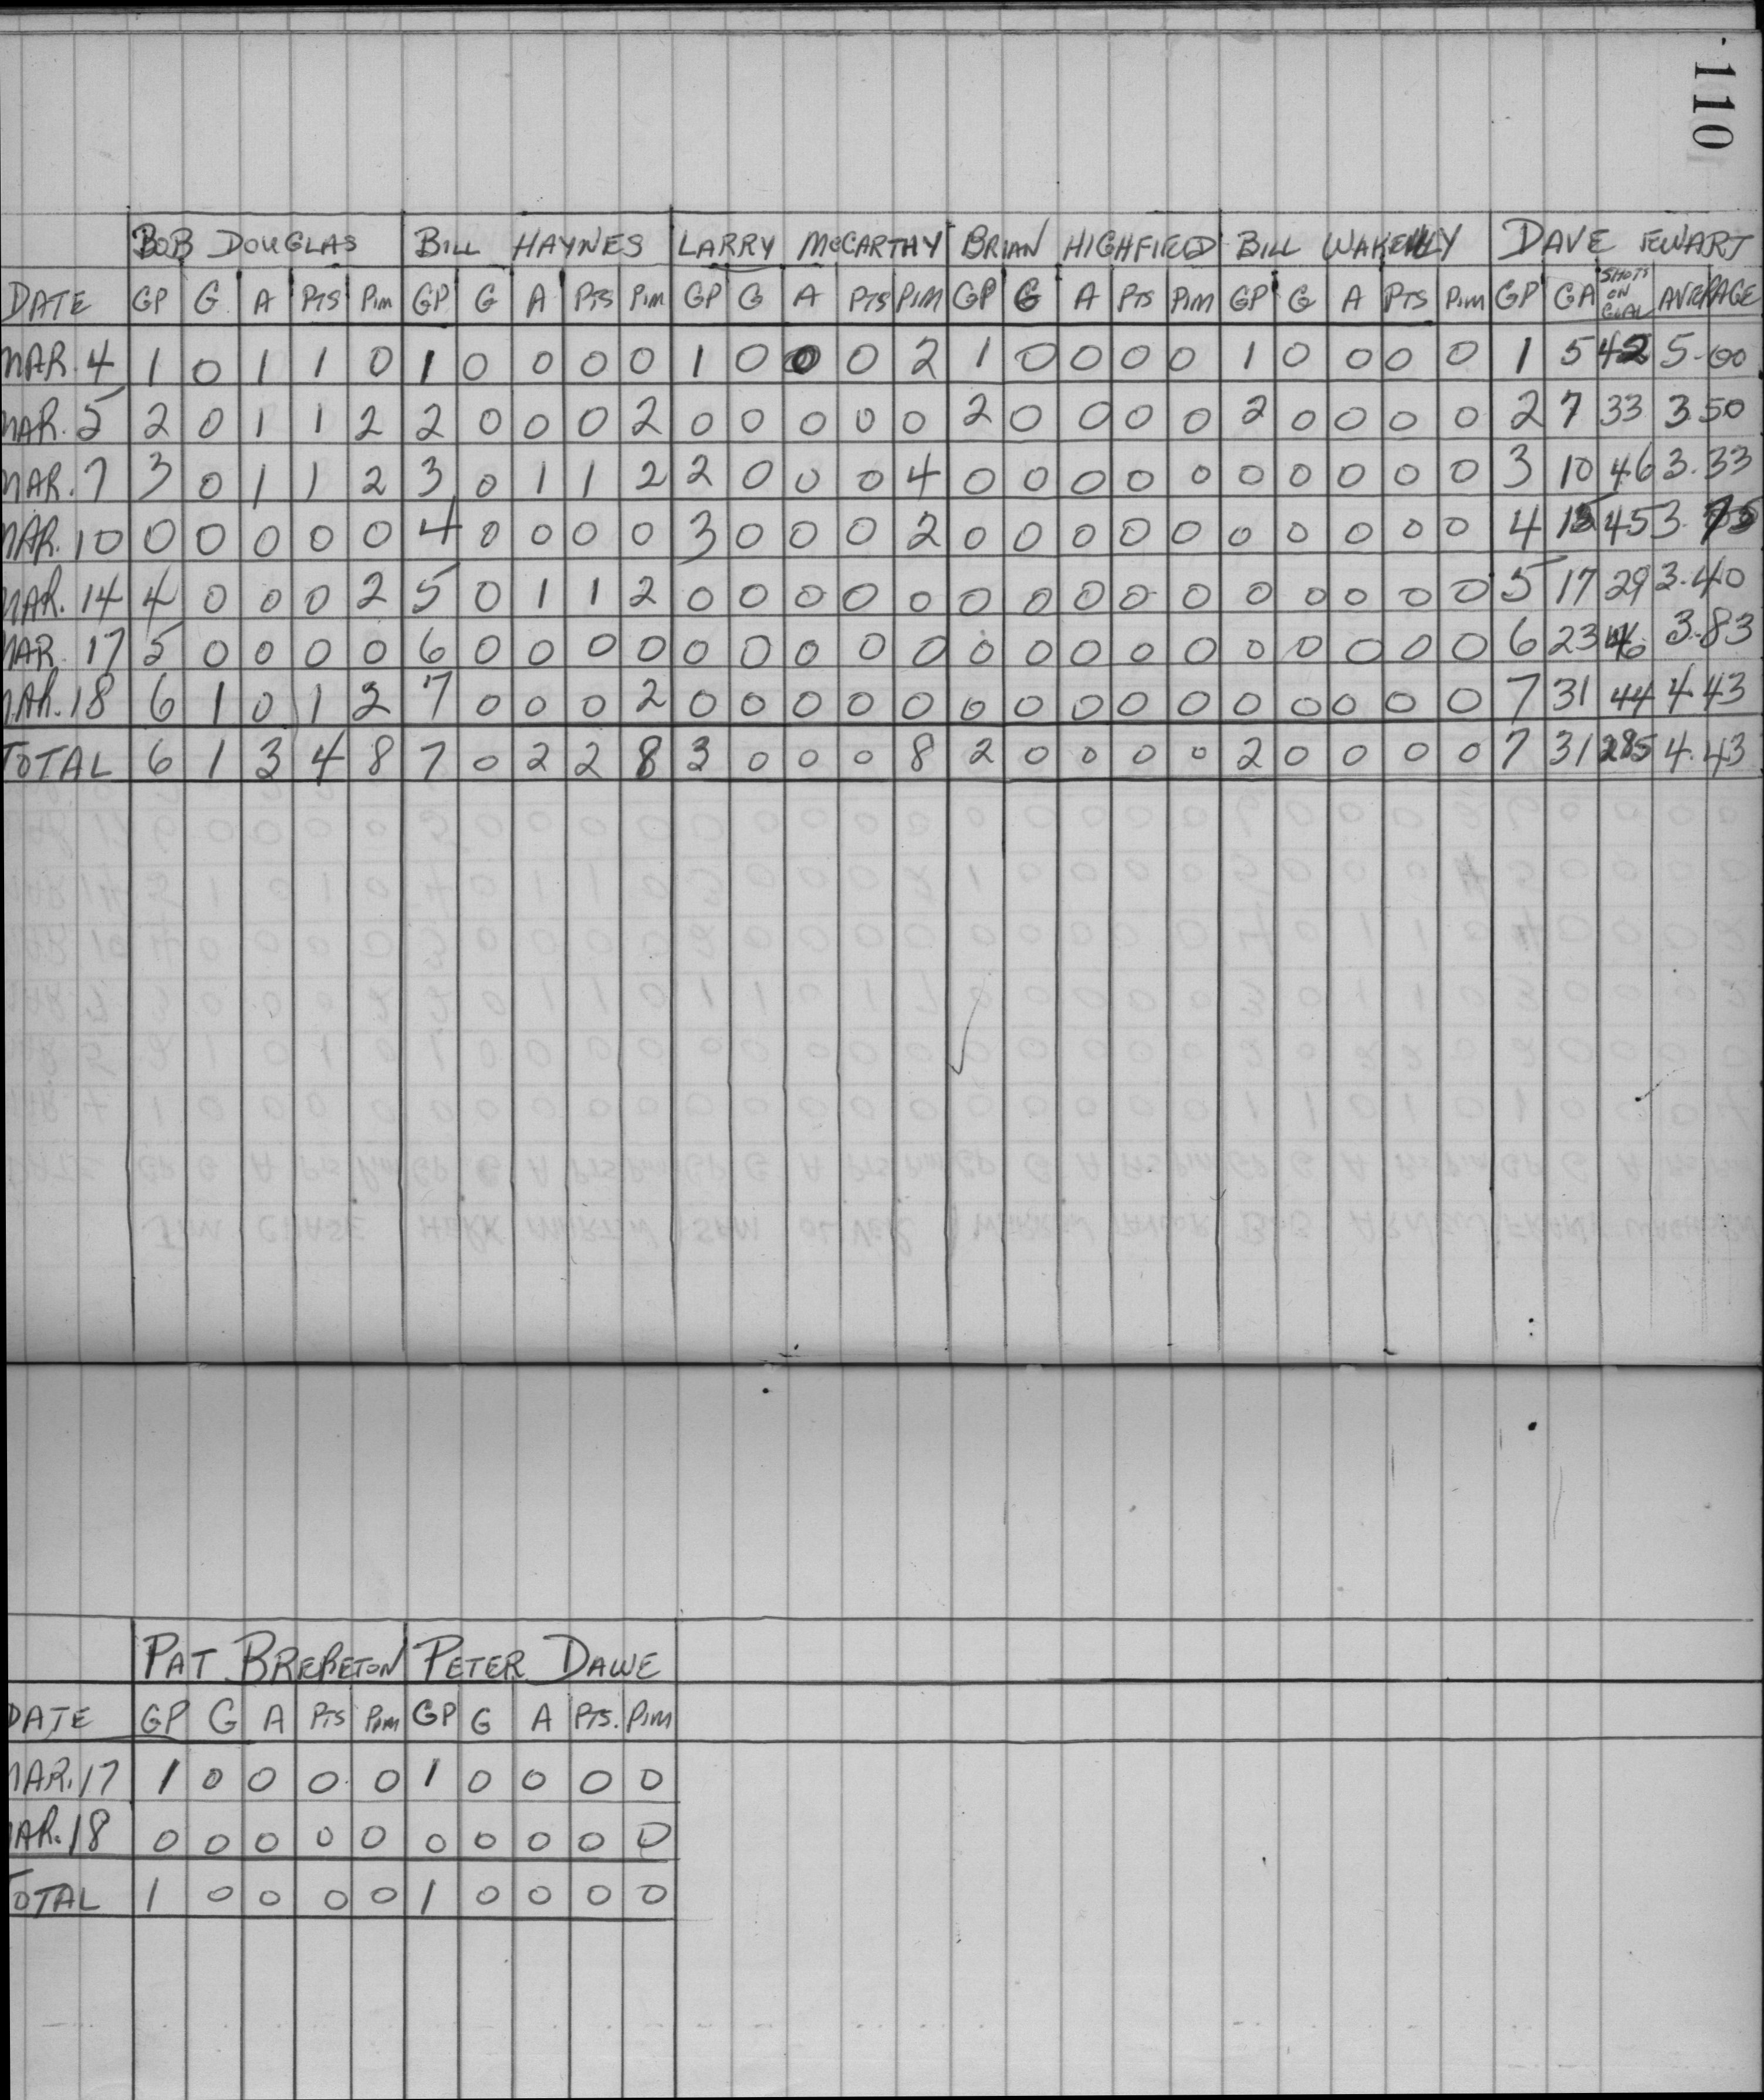 110
BOB DOUGLAS BILL HAYNES LARRY McCARTHY BRIAN HIGHFIELD BILL WAKELY DAVE EWART
DATE GP G A PTS PIM GP G A PTS PIM GP G A PTS PIM GP G A PTS PIM GP G A PTS PIM GP GA SHOTS ON GOAL AVERAGE
MAR. 4 1 0 1 1 0 1 0 0 0 0 1 0 0 0 2 1 0 0 0 0 1 0 0 0 0 1 5 42 5.00
MAR. 5 2 0 1 1 2 2 0 0 0 2 0 0 0 0 0 2 0 0 0 0 2 0 0 0 0 2 7 33 3.50
MAR. 7 3 0 1 1 2 3 0 1 1 2 2 0 0 0 4 0 0 0 0 0 0 0 0 0 0 3 10 46 3.33
MAR. 10 0 0 0 0 0 4 0 0 0 0 3 0 0 0 2 0 0 0 0 0 0 0 0 0 0 4 15 45 3.75
MAR. 14 4 0 0 0 2 5 0 1 1 2 0 0 0 0 0 0 0 0 0 0 0 0 0 0 0 5 17 29 3.40
MAR. 17 5 0 0 0 0 6 0 0 0 0 0 0 0 0 0 0 0 0 0 0 0 0 0 0 0 6 23 46 3.83
MAR. 18 6 1 0 1 2 7 0 0 0 2 0 0 0 0 0 0 0 0 0 0 0 0 0 0 0 7 31 44 4.43
TOTAL 6 1 3 4 8 7 0 2 2 8 3 0 0 0 8 2 0 0 0 0 2 0 0 0 0 7 31 285 4.43
PAT BREBETON PETER DAWE
DATE GP G A PTS PIM GP G A PTS. PIM
MAR. 17 1 0 0 0 0 1 0 0 0 0
MAR. 18 0 0 0 0 0 0 0 0 0 0
TOTAL 1 0 0 0 0 1 0 0 0 0